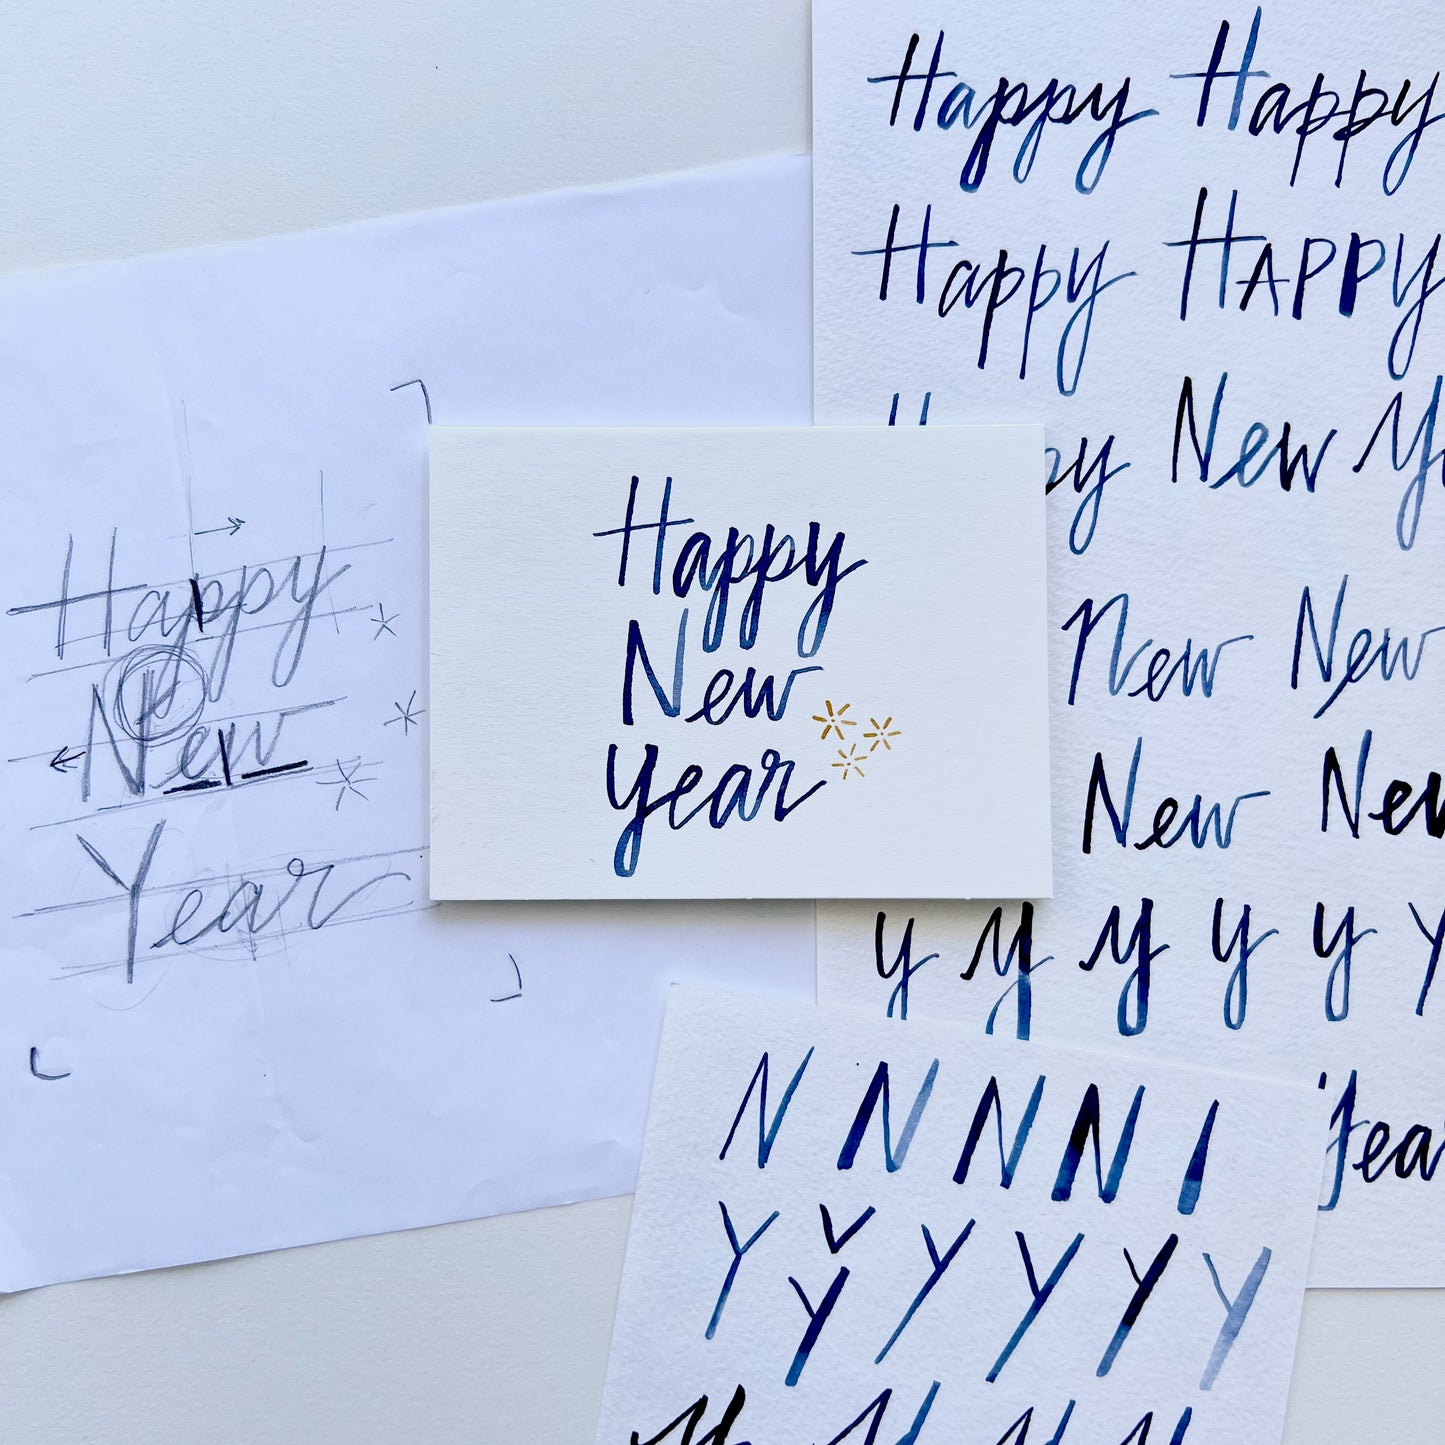 Happy
New
Year
Happy
New
year
Happy Happy
Happy HAPPY
New
New New
New New
y y y y y y
year
N N N N
Y Y Y Y Y Y